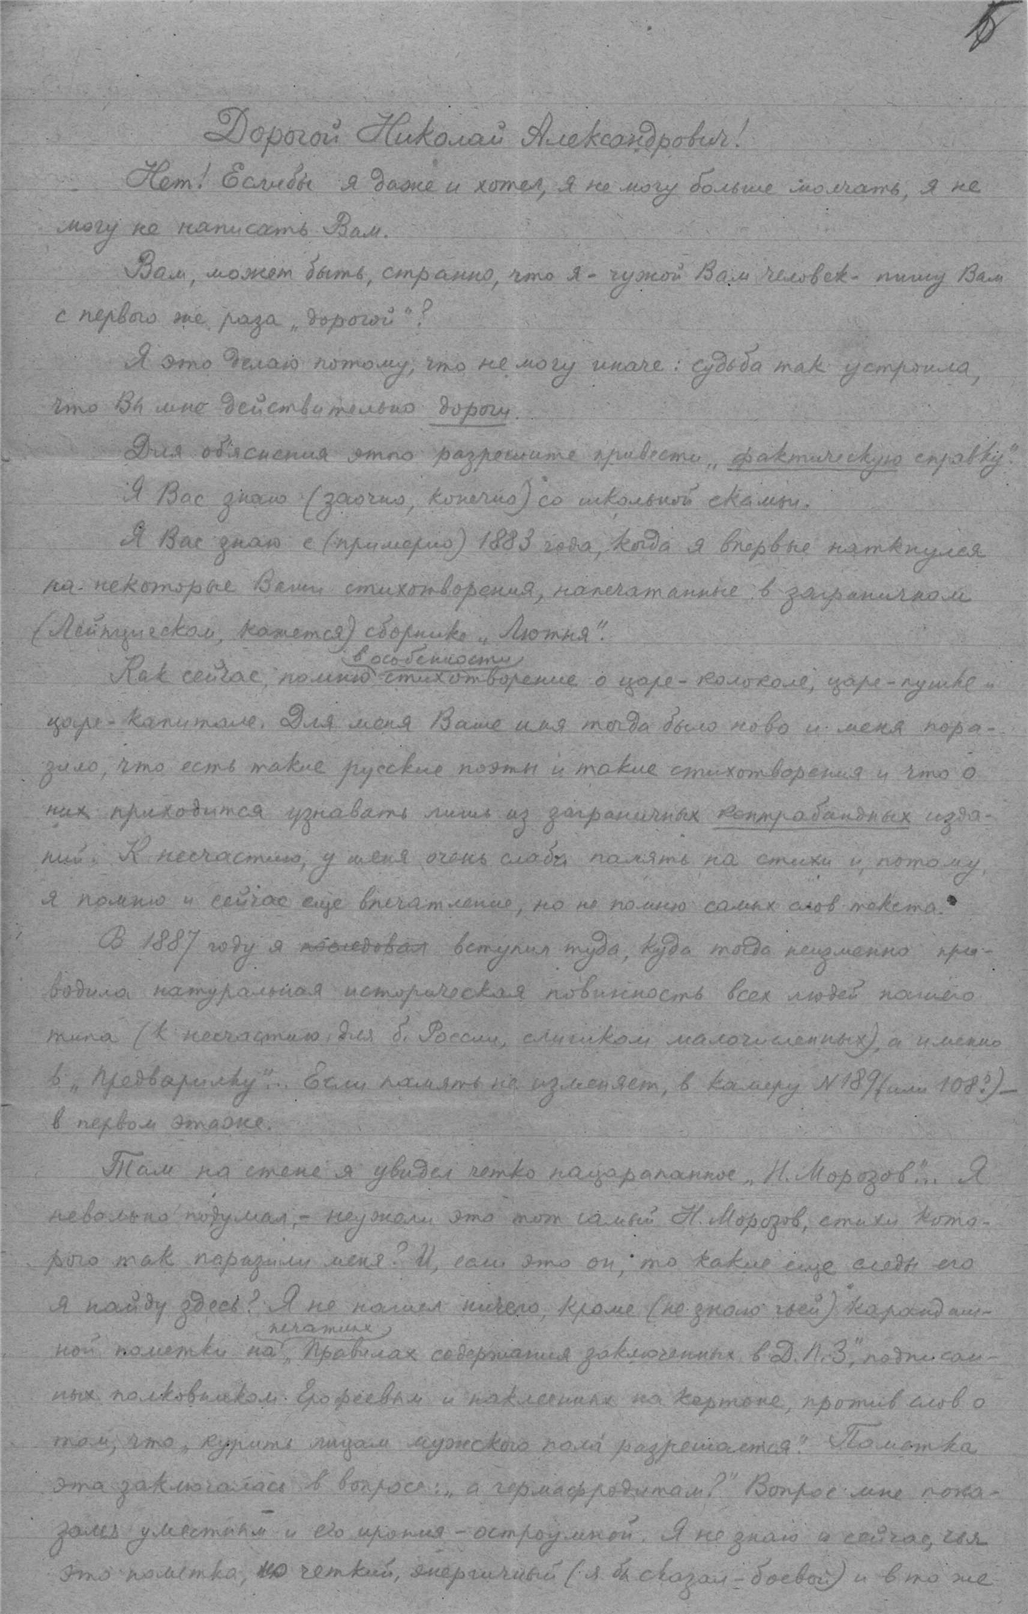 Дорогой Николай Александрович!
Нет! Еслибы я даже и хотел, я не могу больше молчать, я не
могу не написать Вам.
Вам, может быть, странно, что я - чужой Вам человек - пишу Вам
с первого же раза „дорогой“?
Я это делаю потому, что не могу иначе: судьба так устроила,
что Вы мне действительно дороги.
Для об'яснения этого разрешите привести „фактическую справку“.
Я Вас знаю (заочно, конечно) со школьной скамьи.
Я Вас знаю с (примерно) 1883 года, когда я впервые наткнулся
на некоторые Ваши стихотворения, напечатанные в заграничном
(Лейпцигском, кажется) сборнике „Лютня“.
в особенности
Как сейчас, помню стихотворение о царе-колоколе, царе-пушке и
царе-капитале. Для меня Ваше имя тогда было ново и меня пора-
зило, что есть такие русские поэты и такие стихотворения и что о
них приходится узнавать лишь из заграничных контрабандных изда-
ний. К несчастию, у меня очень слаба память на стихи и, потому,
я помню и сейчас еще впечатление, но не помню самых слов текста.
В 1887 году я последовал вступил туда, куда тогда неизменно при-
водила натуральная историческая повинность всех людей нашего
типа (к несчастию для б. России, слишком малочисленных), а именно
в „Предварилку“.. Если память не изменяет, в камеру N 189 (или 108?) -
в первом этаже.
Там на стене я увидел четко нацарапанное „Н. Морозов“... Я
невольно подумал, - неужели это тот самый Н. Морозов, стихи кото-
рого так поразили меня? И, если это он, то какие еще следы его
я найду здесь? Я не нашел ничего, кроме (не знаю чьей) карандаш-
печатных
ной пометки на „Правилах содержания заключенных в Д.П.З.“, подписан-
ных полковником Ерофеевым и наклеенных на картоне, против слов о
том, что „курить лицам мужского пола разрешается“. Пометка
эта заключалась в вопросе: „а гермафродитам?“ Вопрос мне пока-
зался уместным и его ирония - остроумной. Я не знаю и сейчас, чья
это пометка, но четкий, энергичный (я бы сказал - боевой) и в то же